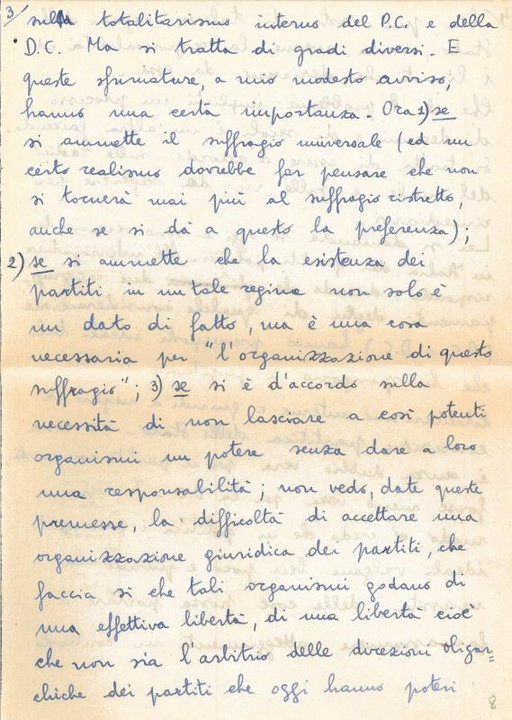 3/ sulla totalitarismo interno del P.C. e della
D.C. Ma si tratta di gradi diversi. E
queste sfumature, a mio modesto avviso,
hanno una certa importanza. Ora 1) se
si ammette il suffragio universale (ed un
certo realismo dovrebbe far pensare che non
si tornerà mai più al suffragio ristretto,
anche se si dà a questo la preferenza);
2) se si ammette che la esistenza dei
partiti in un tale regime non solo è
un dato di fatto, ma è una cosa
necessaria per "l'organizzazione di questo
suffragio"; 3) se si è d'accordo sulla
necessità di non lasciare a così potenti
organismi un potere senza dare a loro
una responsabilità; non vedo, date queste
premesse, la difficoltà di accettare una
organizzazione giuridica dei partiti, che
faccia sì che tali organismi godano di
una effettiva libertà, di una libertà cioè
che non sia l'arbitrio delle direzioni oligar-
chiche dei partiti che oggi hanno poteri
8